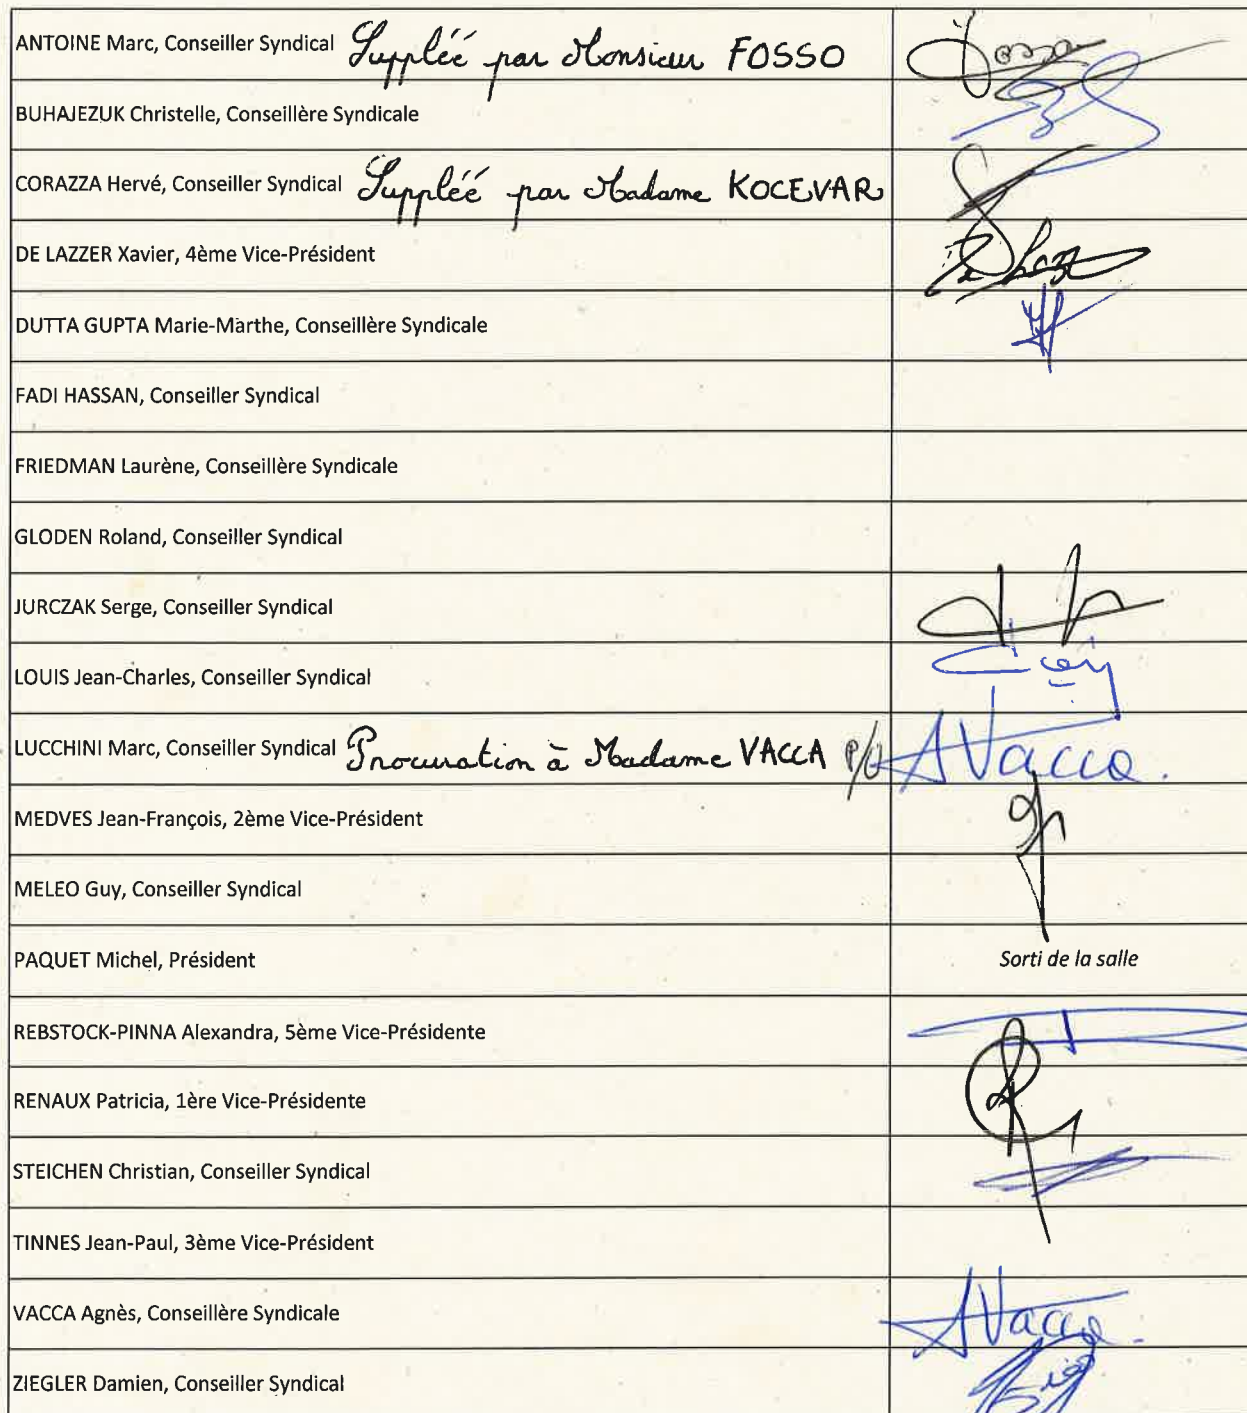 ANTOINE Marc, Conseiller Syndical Suppléé par Monsieur FOSSO
BUHAJEZUK Christelle, Conseillère Syndicale
CORAZZA Hervé, Conseiller Syndical Suppléé par Madame KOCEVAR
DE LAZZER Xavier, 4ème Vice-Président
DUTTA GUPTA Marie-Marthe, Conseillère Syndicale
FADI HASSAN, Conseiller Syndical
FRIEDMAN Laurène, Conseillère Syndicale
GLODEN Roland, Conseiller Syndical
JURCZAK Serge, Conseiller Syndical
LOUIS Jean-Charles, Conseiller Syndical
LUCCHINI Marc, Conseiller Syndical Procuration à Madame VACCA P/O AVacca.
MEDVES Jean-François, 2ème Vice-Président
MELEO Guy, Conseiller Syndical
PAQUET Michel, Président Sorti de la salle
REBSTOCK-PINNA Alexandra, 5ème Vice-Présidente
RENAUX Patricia, 1ère Vice-Présidente
STEICHEN Christian, Conseiller Syndical
TINNES Jean-Paul, 3ème Vice-Président
VACCA Agnès, Conseillère Syndicale AVacca.
ZIEGLER Damien, Conseiller Syndical